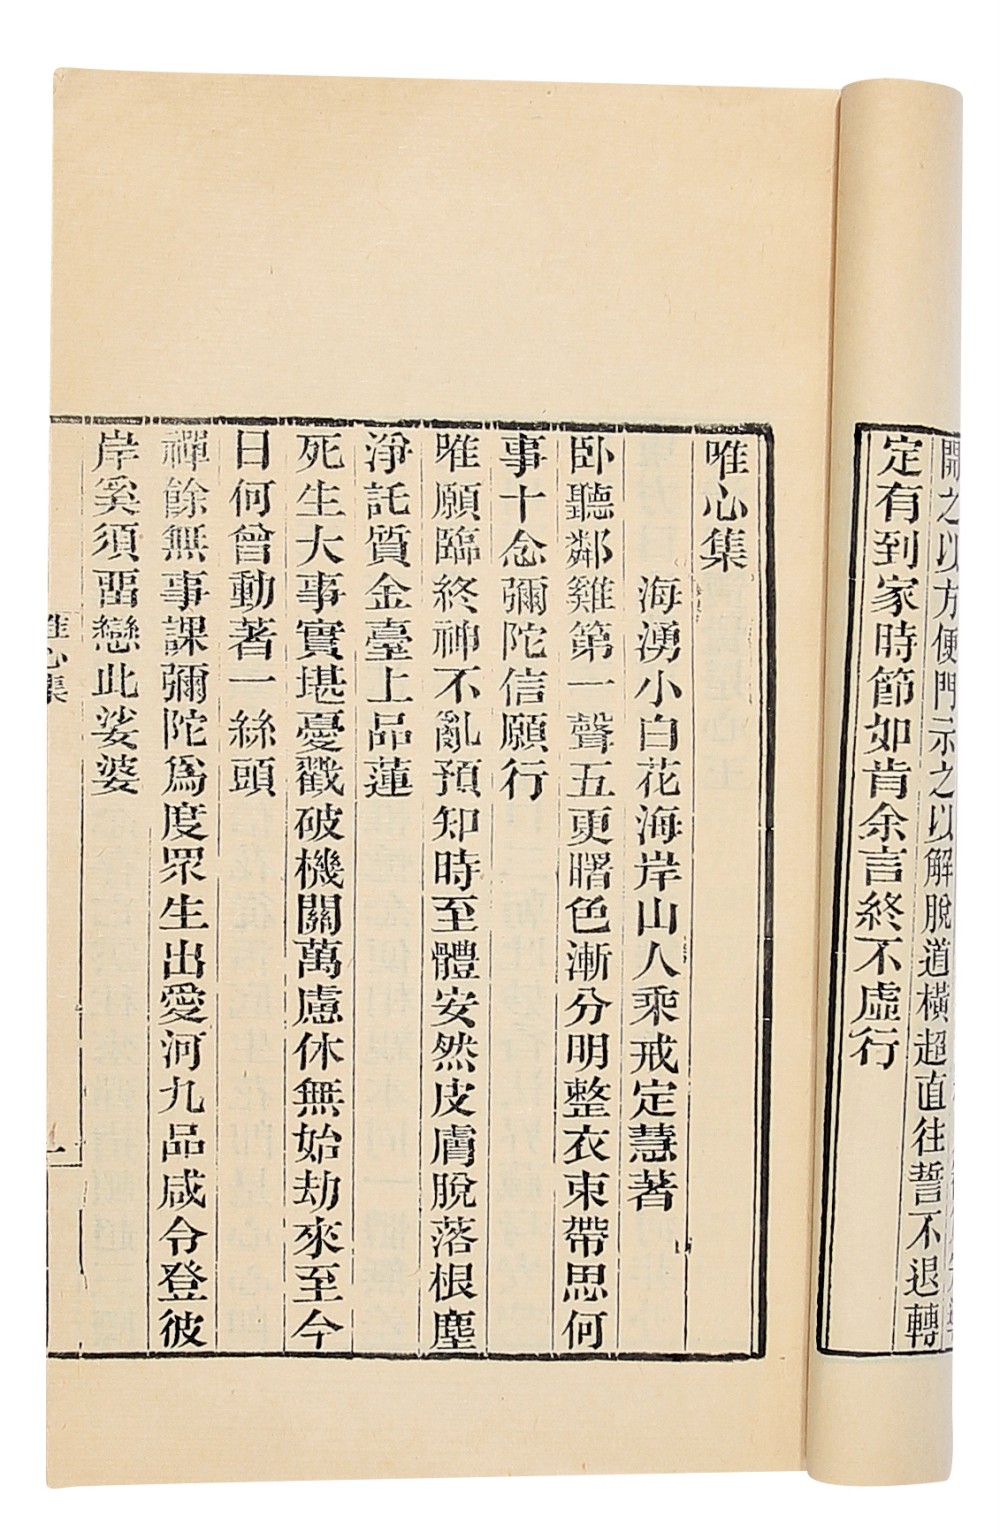 開之以方便門示之以解脫道橫超直往誓不退轉
定有到家時節如肯余言終不虛行
唯心集
海湧小白花海岸山人乘戒定慧著
卧聽鄰雞第一聲五更曙色漸分明整衣束帶思何
事十念彌陀信願行
唯願臨終神不亂預知時至體安然皮膚脫落根塵
淨託質金臺上品蓮
死生大事實堪憂戳破機關萬慮休無始劫來至今
日何曾動著一絲頭
禪餘無事課彌陀爲度眾生出愛河九品咸令登彼
岸奚須畱戀此娑婆
唯心集
一